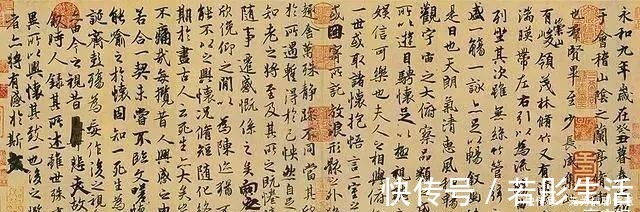 永和九年歲在癸丑暮春
于會稽山陰之蘭亭
也群賢畢至少長咸
有崇山峻領茂林脩竹又有
湍暎帶左右引以為流
列坐其次雖無絲竹
盛一觴一詠亦足以暢敘
是日也天朗氣清惠風
觀宇宙之大俯察品類
所以遊目騁懷足以極
娛信可樂也夫人之相與
一世或取諸懷抱悟言一室
或因寄所託放浪形骸之
趣舍萬殊靜躁不同當
於所遇暫得於己怏然自足
知老之將至及其所之既惓
隨事遷感慨係之矣向之
欣俛仰之間以為陳迹猶不
能不以之興懷況脩短隨化終
期於盡古人云死生亦大矣豈
不痛哉每攬昔人興感之由
若合一契未嘗不臨文嗟悼
能喻之於懷固知一死生為
誕齊彭殤為妄作後之視
今之視昔悲夫故
敘時人錄其所述雖世殊事
異所以興懷其致一也後之
者亦將有感於斯文
快传号 / 若彤生活